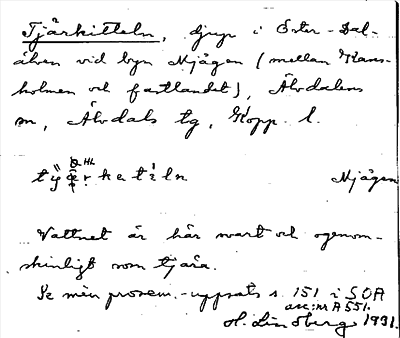 Tjärkitteln, djup i Öster-Dal-
älven vid byn Mjågen (mellan Kars-
holmen och fastlandet), Älvdalens
sn, Älvdals tg, Kopp. l.
Mjågen
Vattnet är här svart och ogenom-
skinligt som tjära.
Se min prosem.-uppsats s. 151 i SOA
acc.nr A 551.
H. Lindberg 1931.